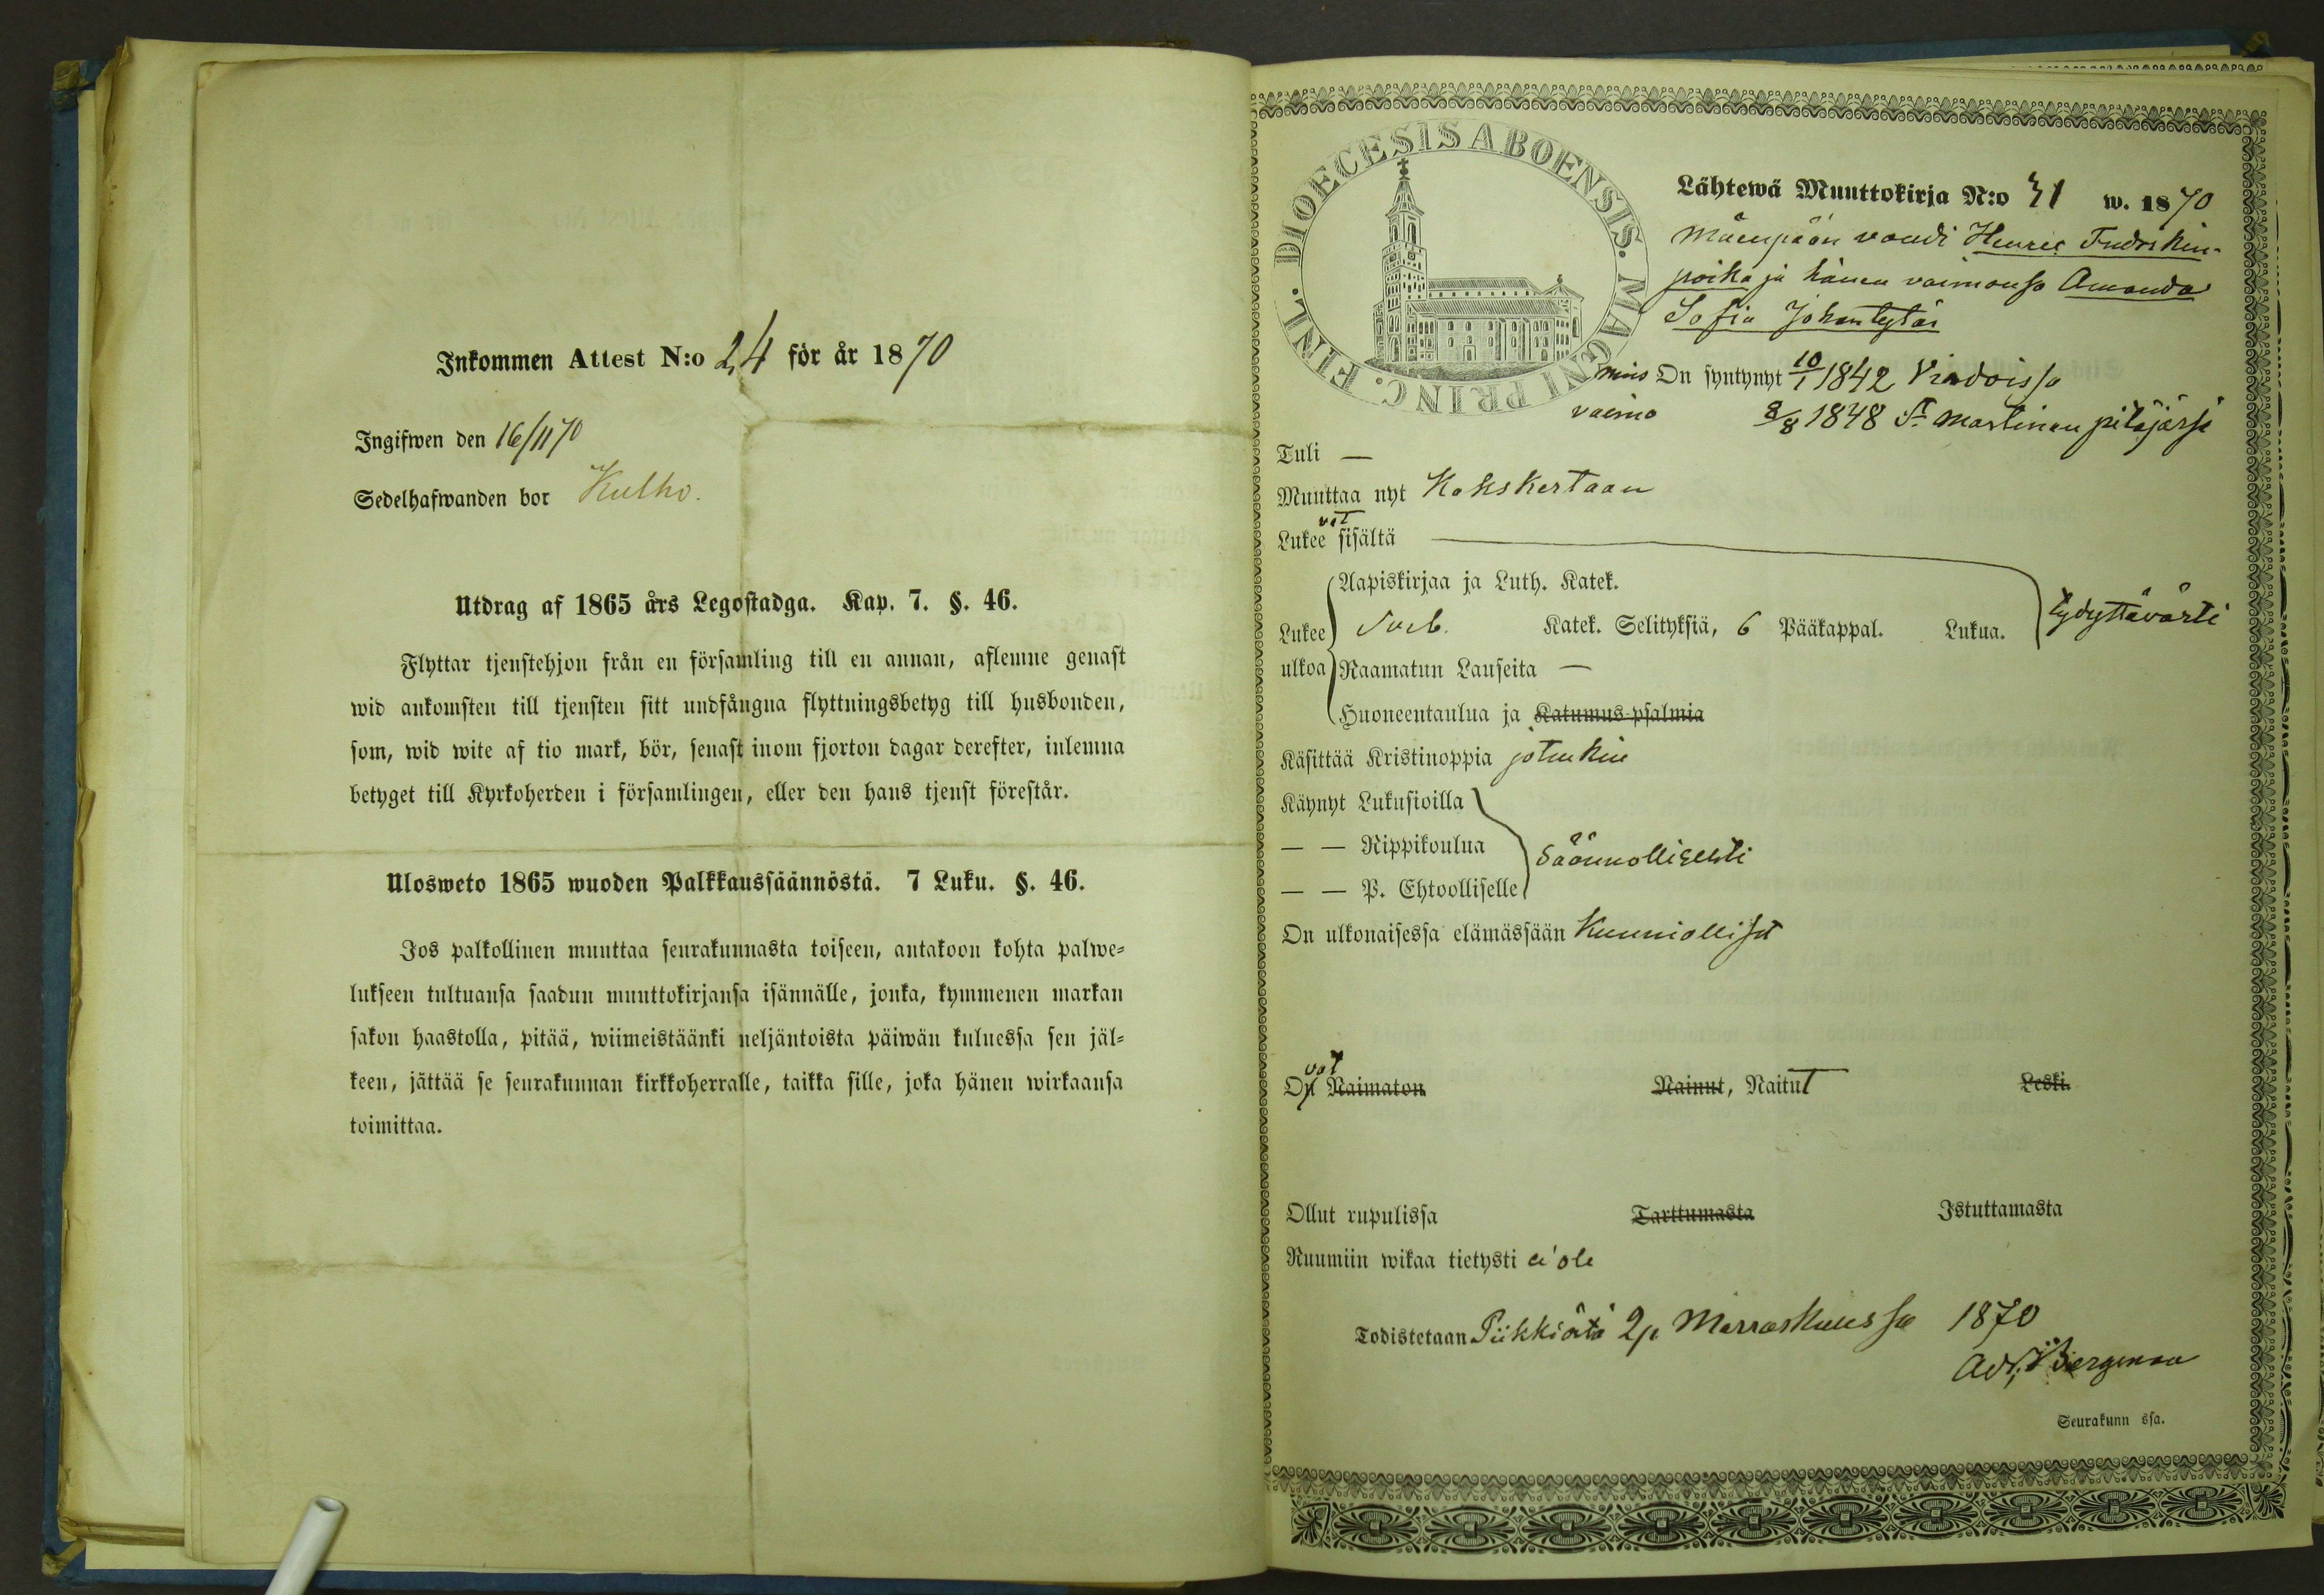 Inkommen Attest N:o 24 för år 1870
Ingifwen den 16/11 70
Sedelhafwanden bor Kulho.
Utdrag af 1865 års Legostadga. Kap. 7. §. 46.
Flyttar tjenstehjon från en församling till en annan, aflemne genast
wid ankomsten till tjensten sitt undfångna flyttningsbetyg till husbonden,
som, wid wite af tio mark, bör, senast inom fjorton dagar derefter, inlemna
betyget till Kyrkoherden i församlingen, eller den hans tjenst förestår.
Ulosweto 1865 wuoden Palkkaussäännöstä. 7 Luku. §. 46.
Jos palkollinen muuttaa seurakunnasta toiseen, antakoon kohta palwe-
lukseen tultuansa saadun muuttokirjansa isännälle, jonka, kymmenen markan
sakon haastolla, pitää, wiimeistäänki neljäntoista päiwän kuluessa sen jäl-
keen, jättää se seurakunnan kirkkoherralle, taikka sille, joka hänen wirkaansa
toimittaa.
FINL. DIOECESIS ABOENSIS. MAGNI PRINC.
Lähtewä Muuttokirja N:o 31 w. 1870
Mäenpään voudi Henric
poika ja hänen vaimonsa Amanda
Sofia Johantytär
mies On syntynyt 10/1 1842 Virdoissa
vaimo 8/8 1848 St Martinan pitäjäsä
Tuli —
Muuttaa nyt Kakskertaan
Lukee vat sisältä
Aapiskirjaa ja Luth. Katek.
Lukee Sveb. Katek. Selityksiä, 6 Pääkappal. Lukua. tydyttävästi
ulkoa Raamatun Lauseita —
Huoneentaulua ja Katumus-psalmia
Käsittää Kristinoppia jotenkin
Käynyt Lukusioilla
— — Rippikoulua Säännöllisesti
— — P. Ehtoolliselle
On ulkonaisessa elämässään Kunnialliset
On vat Naimaton Nainut, Naitut Leski.
Ollut rupulissa Tarttumasta Istuttamasta
Ruumiin wikaa tietysti ei ole
Todistetaan Piikkiöstä 2 p. Marraskuussa 1870
Bergman
Seurakunn ssa.